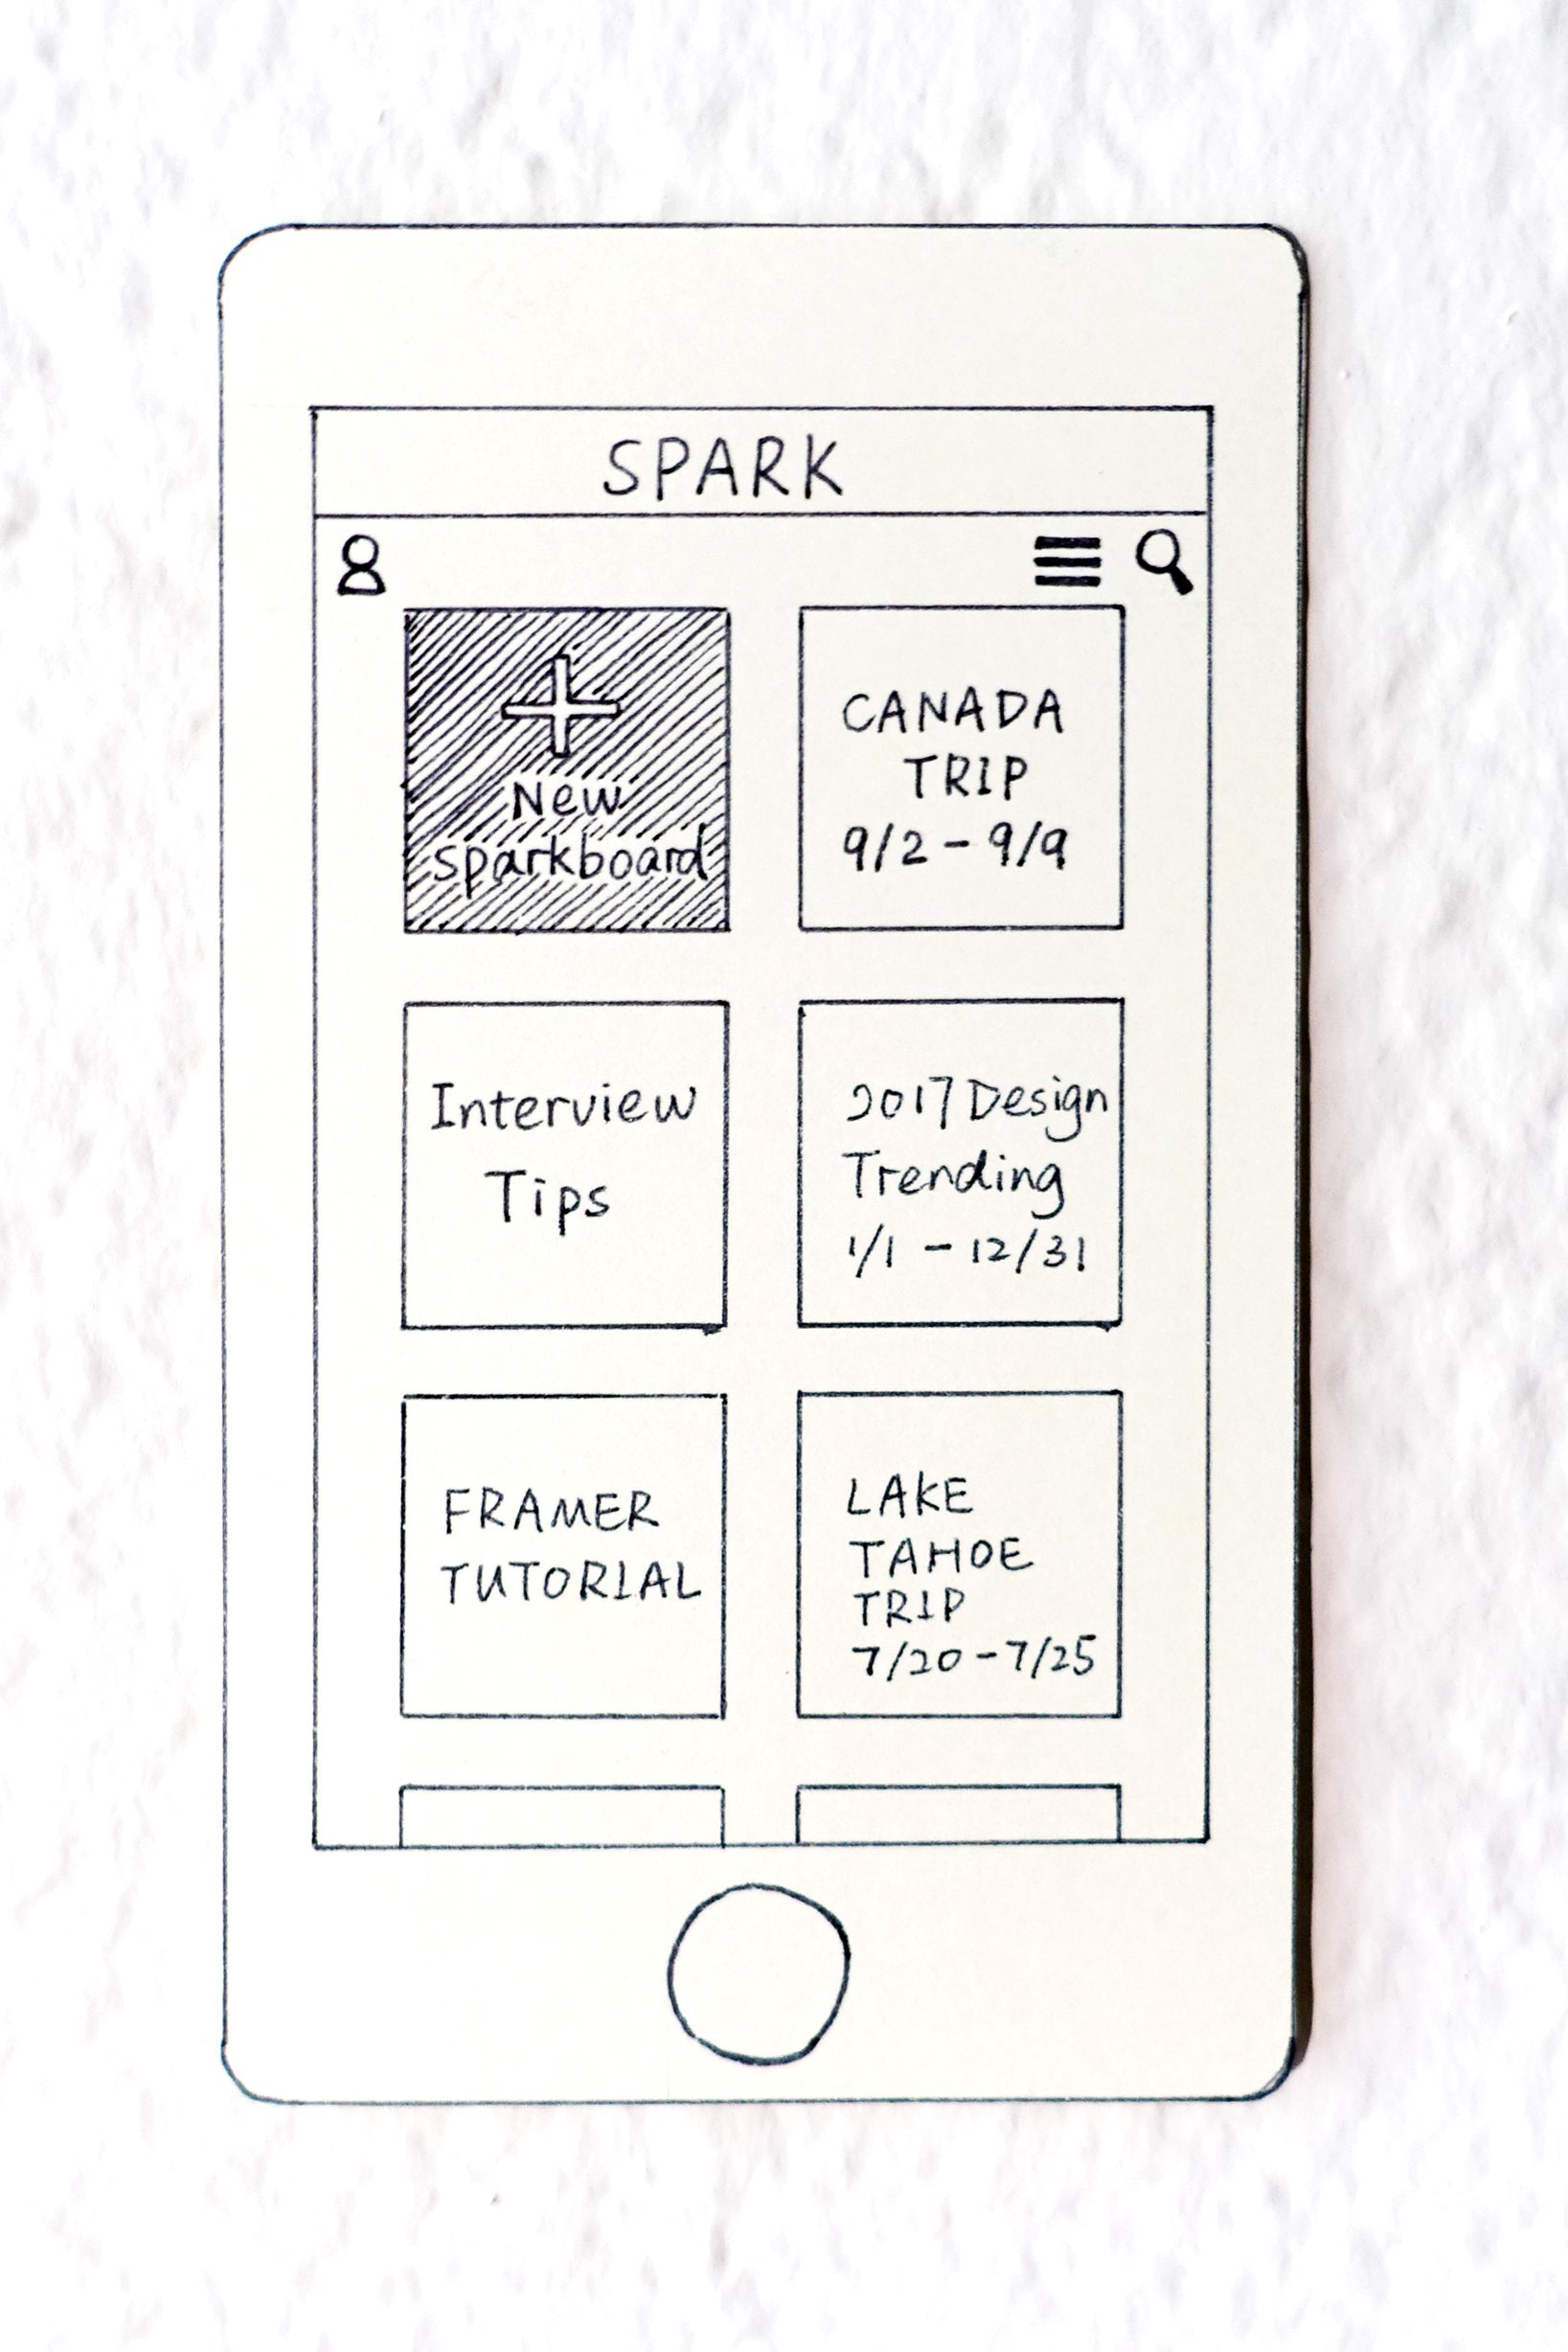 SPARK
New
sparkboard
CANADA
TRIP
9/2 - 9/9
Interview
Tips
2017 Design
Trending
1/1 - 12/31
FRAMER
TUTORIAL
LAKE
TAHOE
TRIP
7/20 - 7/25